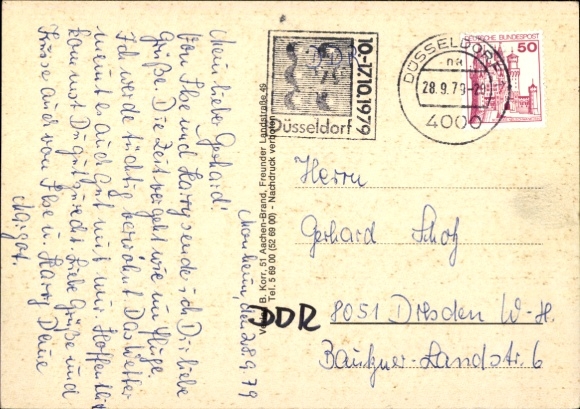 Monheim, den 28.9.79
Mein lieber Gerhard!
Von Ilse und Harry sende ich Dir liebe
Grüße. Die Zeit vergeht wie im Fluge.
Ich werde tüchtig verwöhnt. Das Wetter
meint es auch gut mit mir. Hoffentlich
kommst Du gut zurecht. Liebe Grüße und
Küsse auch von Ilse u. Harry Deine
Margot.
Verlag B. Korr, 51 Aachen-Brand, Freunder Landstraße 49
Tel. 5 69 00 (52 69 00) - Nachdruck verboten
10.-17.10.1979
Düsseldorf
DÜSSELDORF
28.9.79
4000
DEUTSCHE BUNDESPOST
50
Herrn
Gerhard
DDR
8051 Dresden W-H.
Bautzner-Landstr. 6